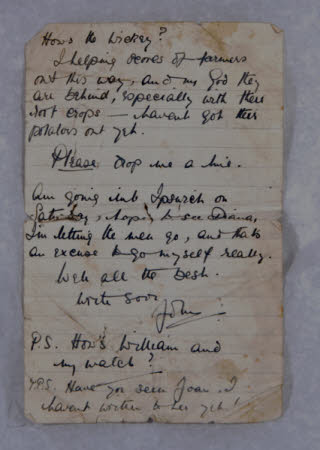 How's the Wickey?
I helping scores of farmers
out this way, and my God they
are behind, especially with their
root crops — havent got their
potatoes out yet.
Please drop me a line.
Am going into Ipswich on
Saturday, hoping to see Diana,
I'm letting the men go, and thats
an excuse to go myself really.
Well all the best.
Write soon
John
P.S. How's William and
my watch?
P.P.S. Have you seen Joan. I
havent written to her yet!